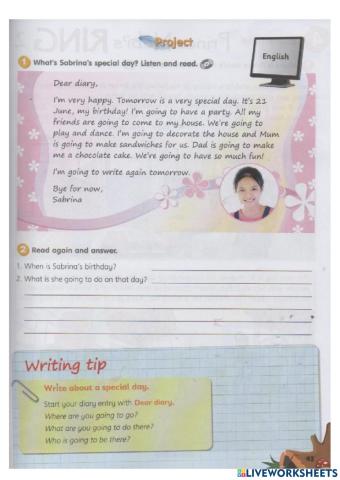 Project
English
1 What's Sabrina's special day? Listen and read.
Dear diary,
I'm very happy. Tomorrow is a very special day. It's 21
June, my birthday! I'm going to have a party. All my
friends are going to come to my house. We're going to
play and dance. I'm going to decorate the house and Mum
is going to make sandwiches for us. Dad is going to make
me a chocolate cake. We're going to have so much fun!
I'm going to write again tomorrow.
Bye for now,
Sabrina
2 Read again and answer.
1. When is Sabrina's birthday?
2. What is she going to do on that day?
Writing tip
Write about a special day.
Start your diary entry with Dear diary,
Where are you going to go?
What are you going to do there?
Who is going to be there?
LIVEWORKSHEETS